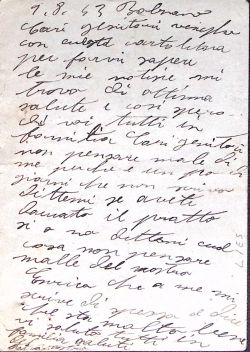 1.8.43 Bolzano
Cari genitori vengho
con questa cartolina
per farvi sapere
le mie notisie mi
trovo di ottima
salute e cosi spero
di voi tutti in
familia Cari genitori
non pensare male di
me perche e un po di
giorni che non scrivo
dittemi se avete
il pratto
si o no dittemi
cosa non pensare
malle del nostro
Enrico che a me mi
scrive di spesso e dice
che sta molto bene
vi saluto tutti in
familia saluti